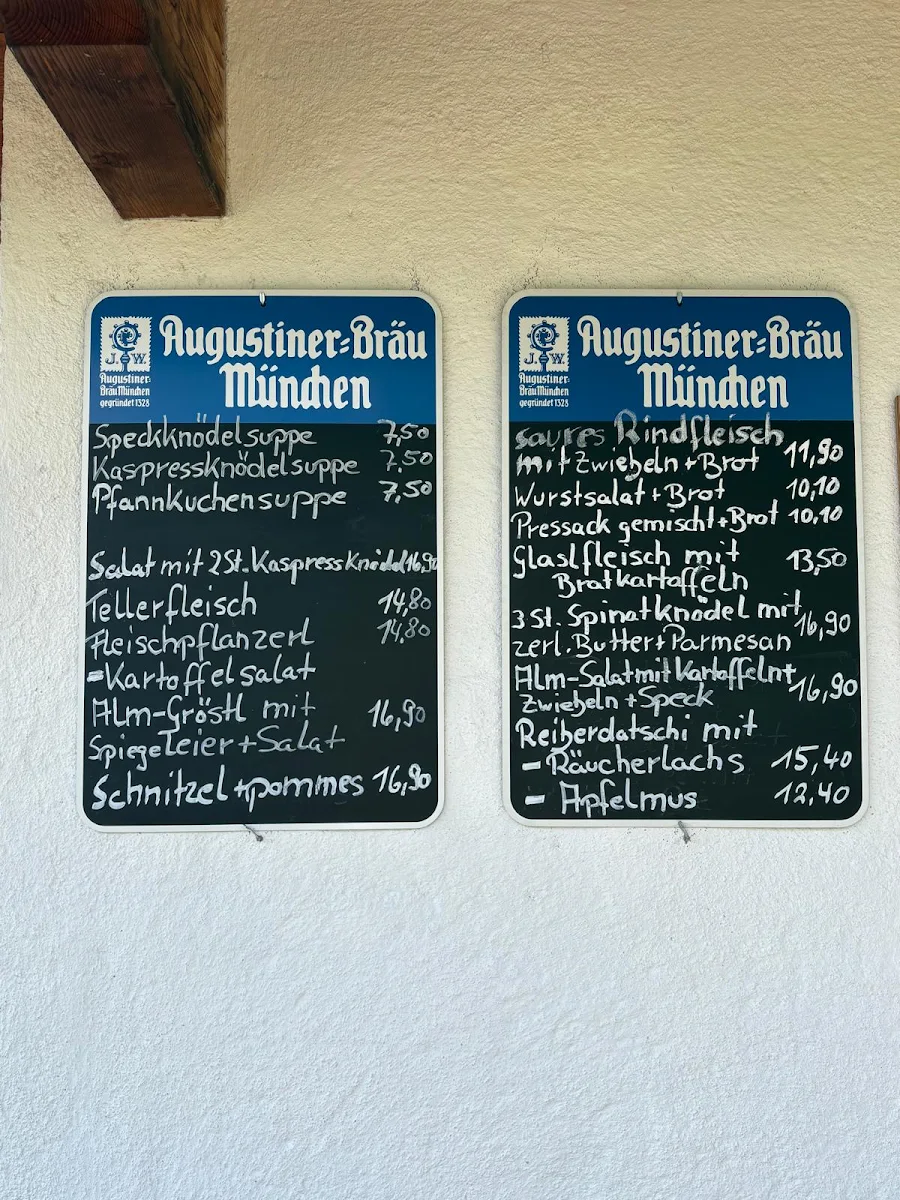 J. W.
Augustiner-
Bräu München
gegründet 1328
Augustiner-Bräu
München
Speckknödelsuppe 7,50
Kaspressknödelsuppe 7.50
Pfannkuchensuppe 7,50
Salat mit 2 St. Kaspressknödel 16,90
Tellerfleisch 14,80
Fleischpflanzerl 14,80
-Kartoffelsalat
Alm-Gröstl mit 16,90
Spiegeleier + Salat
Schnitzel + pommes 16,90
J. W.
Augustiner-
Bräu München
gegründet 1328
Augustiner-Bräu
München
saures Rindfleisch
mit Zwiebeln + Brot 11,90
Wurstsalat + Brot 10,10
Pressack gemischt + Brot 10,10
Glaslfleisch mit 13,50
Bratkartoffeln
3 St. Spinatknödel mit 16,90
zerl. Butter + Parmesan
Alm-Salat mit Kartoffeln + 16,90
Zwiebeln + Speck
Reiberdatschi mit
- Räucherlachs 15,40
- Apfelmus 12,40